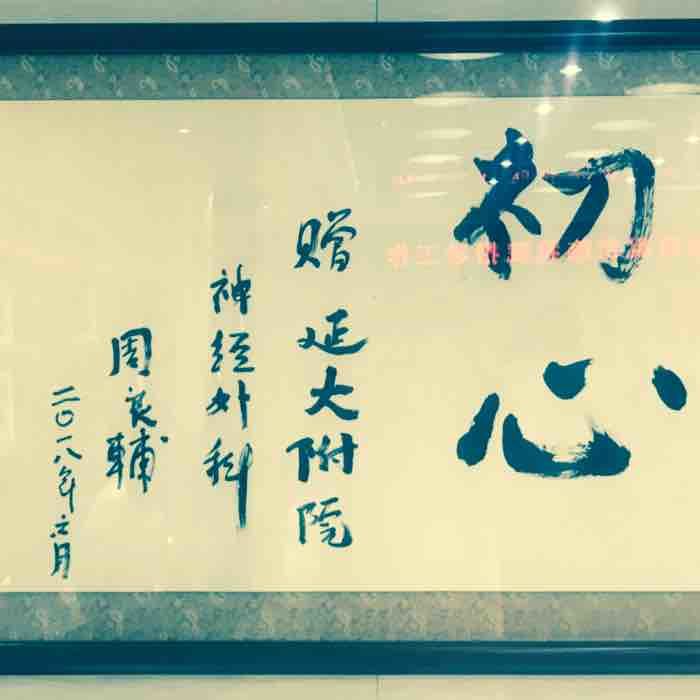 初心
赠延大附院
神经外科
周良辅
二〇一八年六月